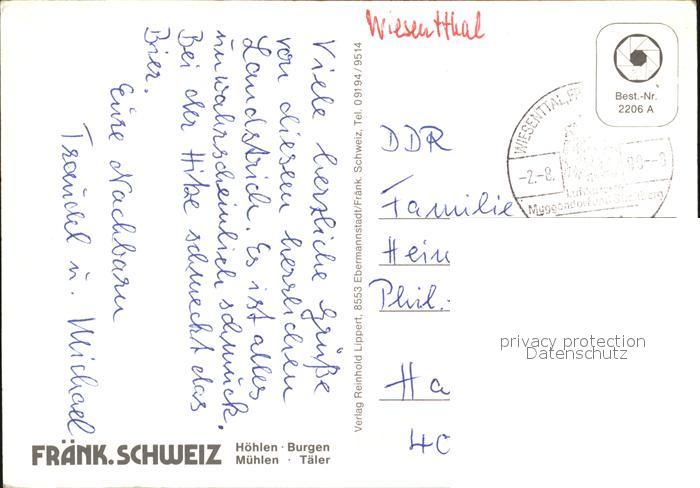 Viele herzliche Grüße
von diesem herrlichen
Landstrich. Es ist alles
unwahrscheinlich schmuck.
Bei der Hitze schmeckt das
Bier.
Eure Nachbarn
Traudel u. Michael
FRÄNK. SCHWEIZ
Höhlen · Burgen
Mühlen · Täler
Verlag Reinhold Lippert, 8553 Ebermannstadt/Fränk. Schweiz, Tel. 09194/9514
Wiesentthal
Best.-Nr.
2206 A
WIESENTTAL
-2.-8.
DDR
Familie
Hein
Phil.-
Ha
40
privacy protection
Datenschutz